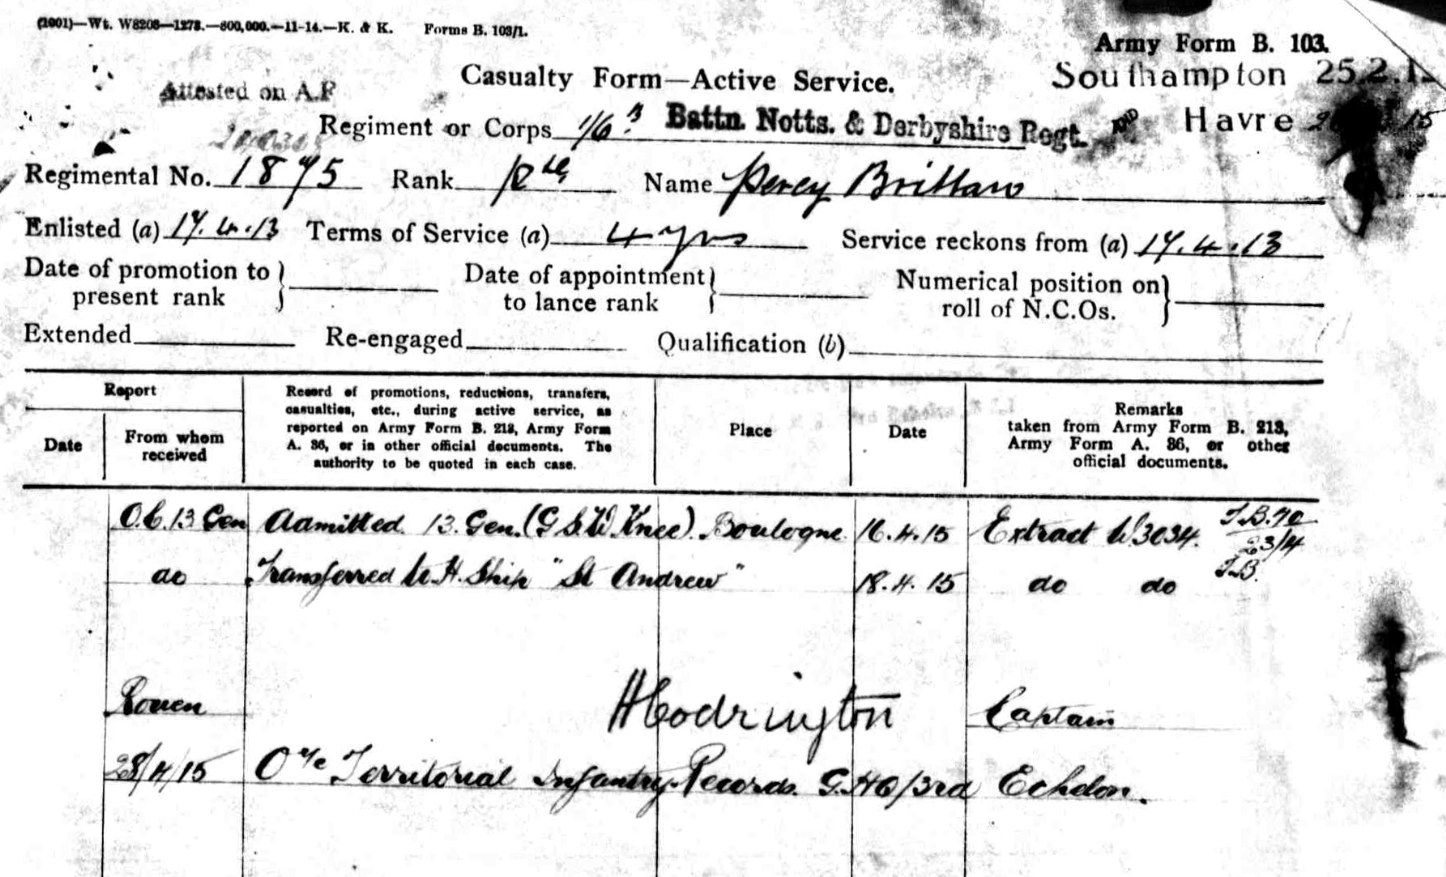 (2001)—Wt. W8208—1278.—800,000.—11-14.—K. & K. Forms B. 103/1.
Army Form B. 103.
Casualty Form—Active Service.
Southampton 25.2.1
Attested on A.F
Regiment or Corps 1/6 Battn. Notts. & Derbyshire Regt. Havre 15
Regimental No. 1875 Rank Pte Name Percy Brittain
Enlisted (a) 17.4.13 Terms of Service (a) 4 yrs Service reckons from (a) 17.4.13
Date of promotion to present rank
Date of appointment to lance rank
Numerical position on roll of N.C.Os.
Extended Re-engaged Qualification (b)
Report
Date
From whom received
Record of promotions, reductions, transfers,
casualties, etc., during active service, as
reported on Army Form B. 213, Army Form
A. 36, or in other official documents. The
authority to be quoted in each case.
Place
Date
Remarks
taken from Army Form B. 213,
Army Form A. 36, or other
official documents.
O.C. 13 Gen Admitted 13. Gen. (G.S.W. Knee). Boulogne 16.4.15 Extract W3034. 23/4
do Transferred to H. Ship "St Andrew" 18.4.15 do do
Rouen HCodrington Captain
28/4/15 O i/c Territorial Infantry Records. G.HQ/3rd Echelon.